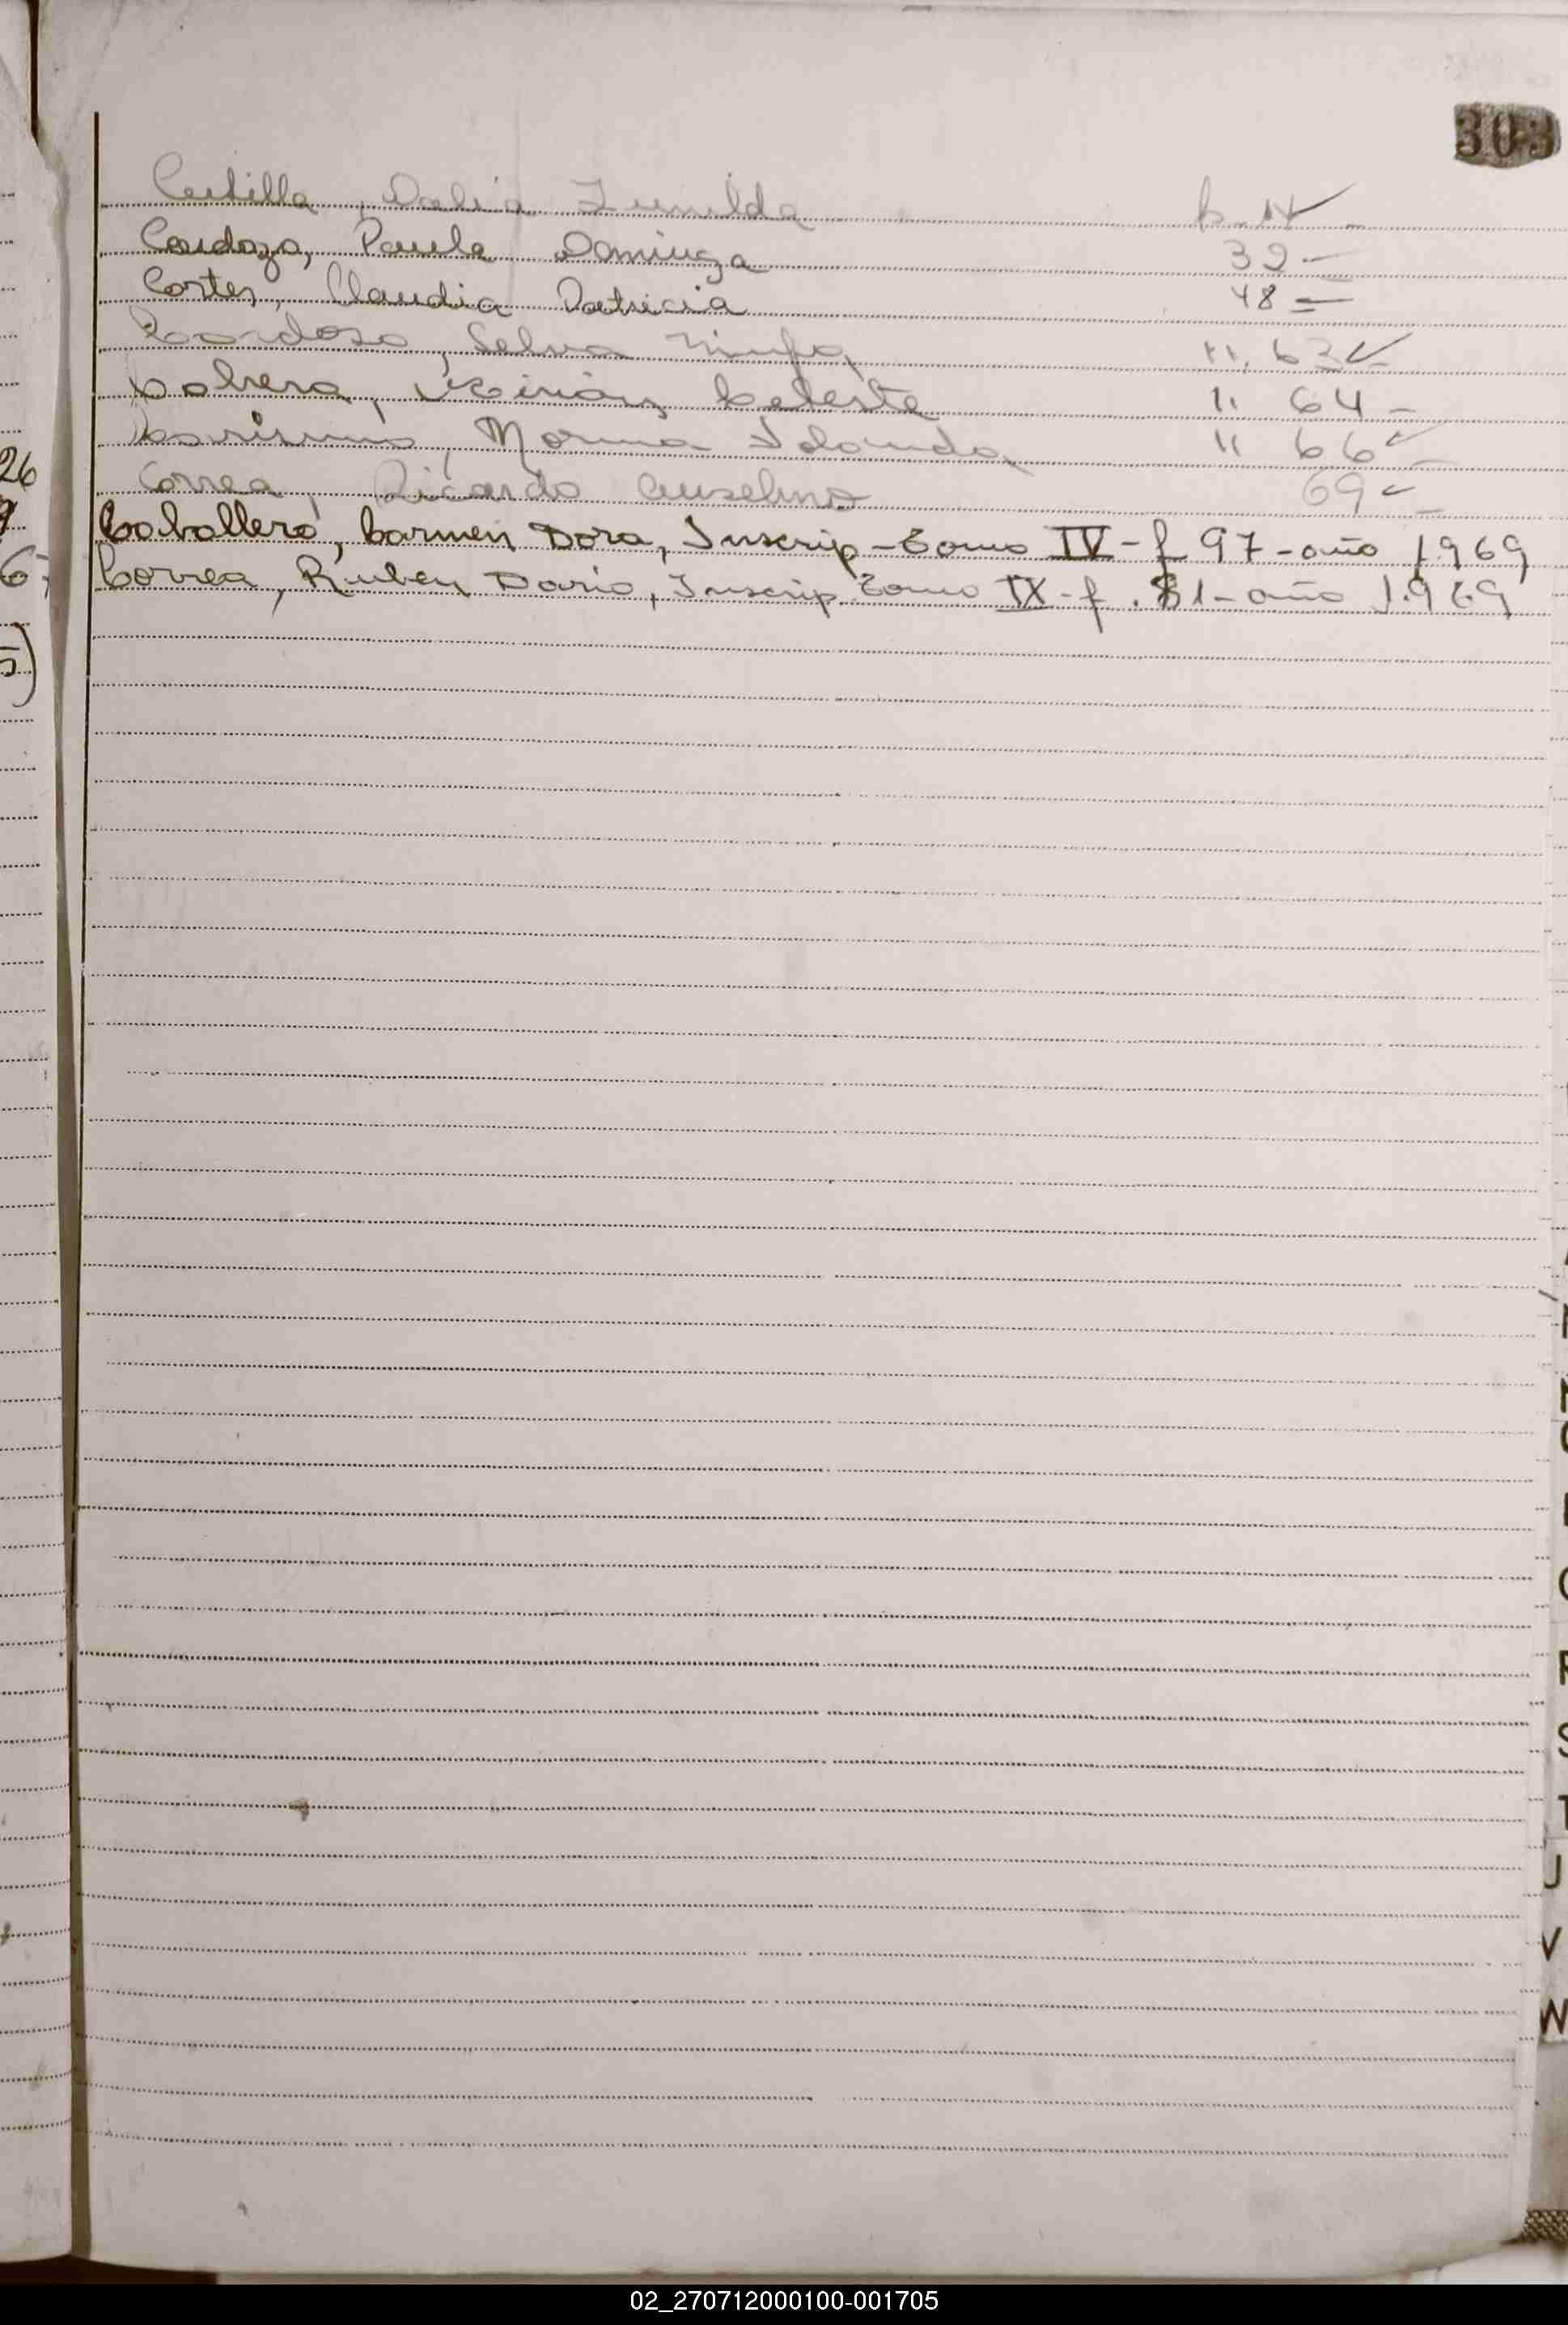 303
Cutilla, Dalia Zunilda
Cardozo, Paula Dominga 32 —
Cortes, Claudia Patricia 48 —
Cardoso, Selva Ninfa " 63 ✓
Cabrera, Celeste " 64 -
Norma Iolanda " 66 ✓
Correa, Ricardo Anselmo 69 ✓
Caballero, Carmen Dora, Inscrip - Tomo IV - f 97 - año 1969
Correa, Ruben Dario, Inscrip Tomo IX - f. 81 - año 1969
26
R
S
T
U
V
W
02_270712000100-001705